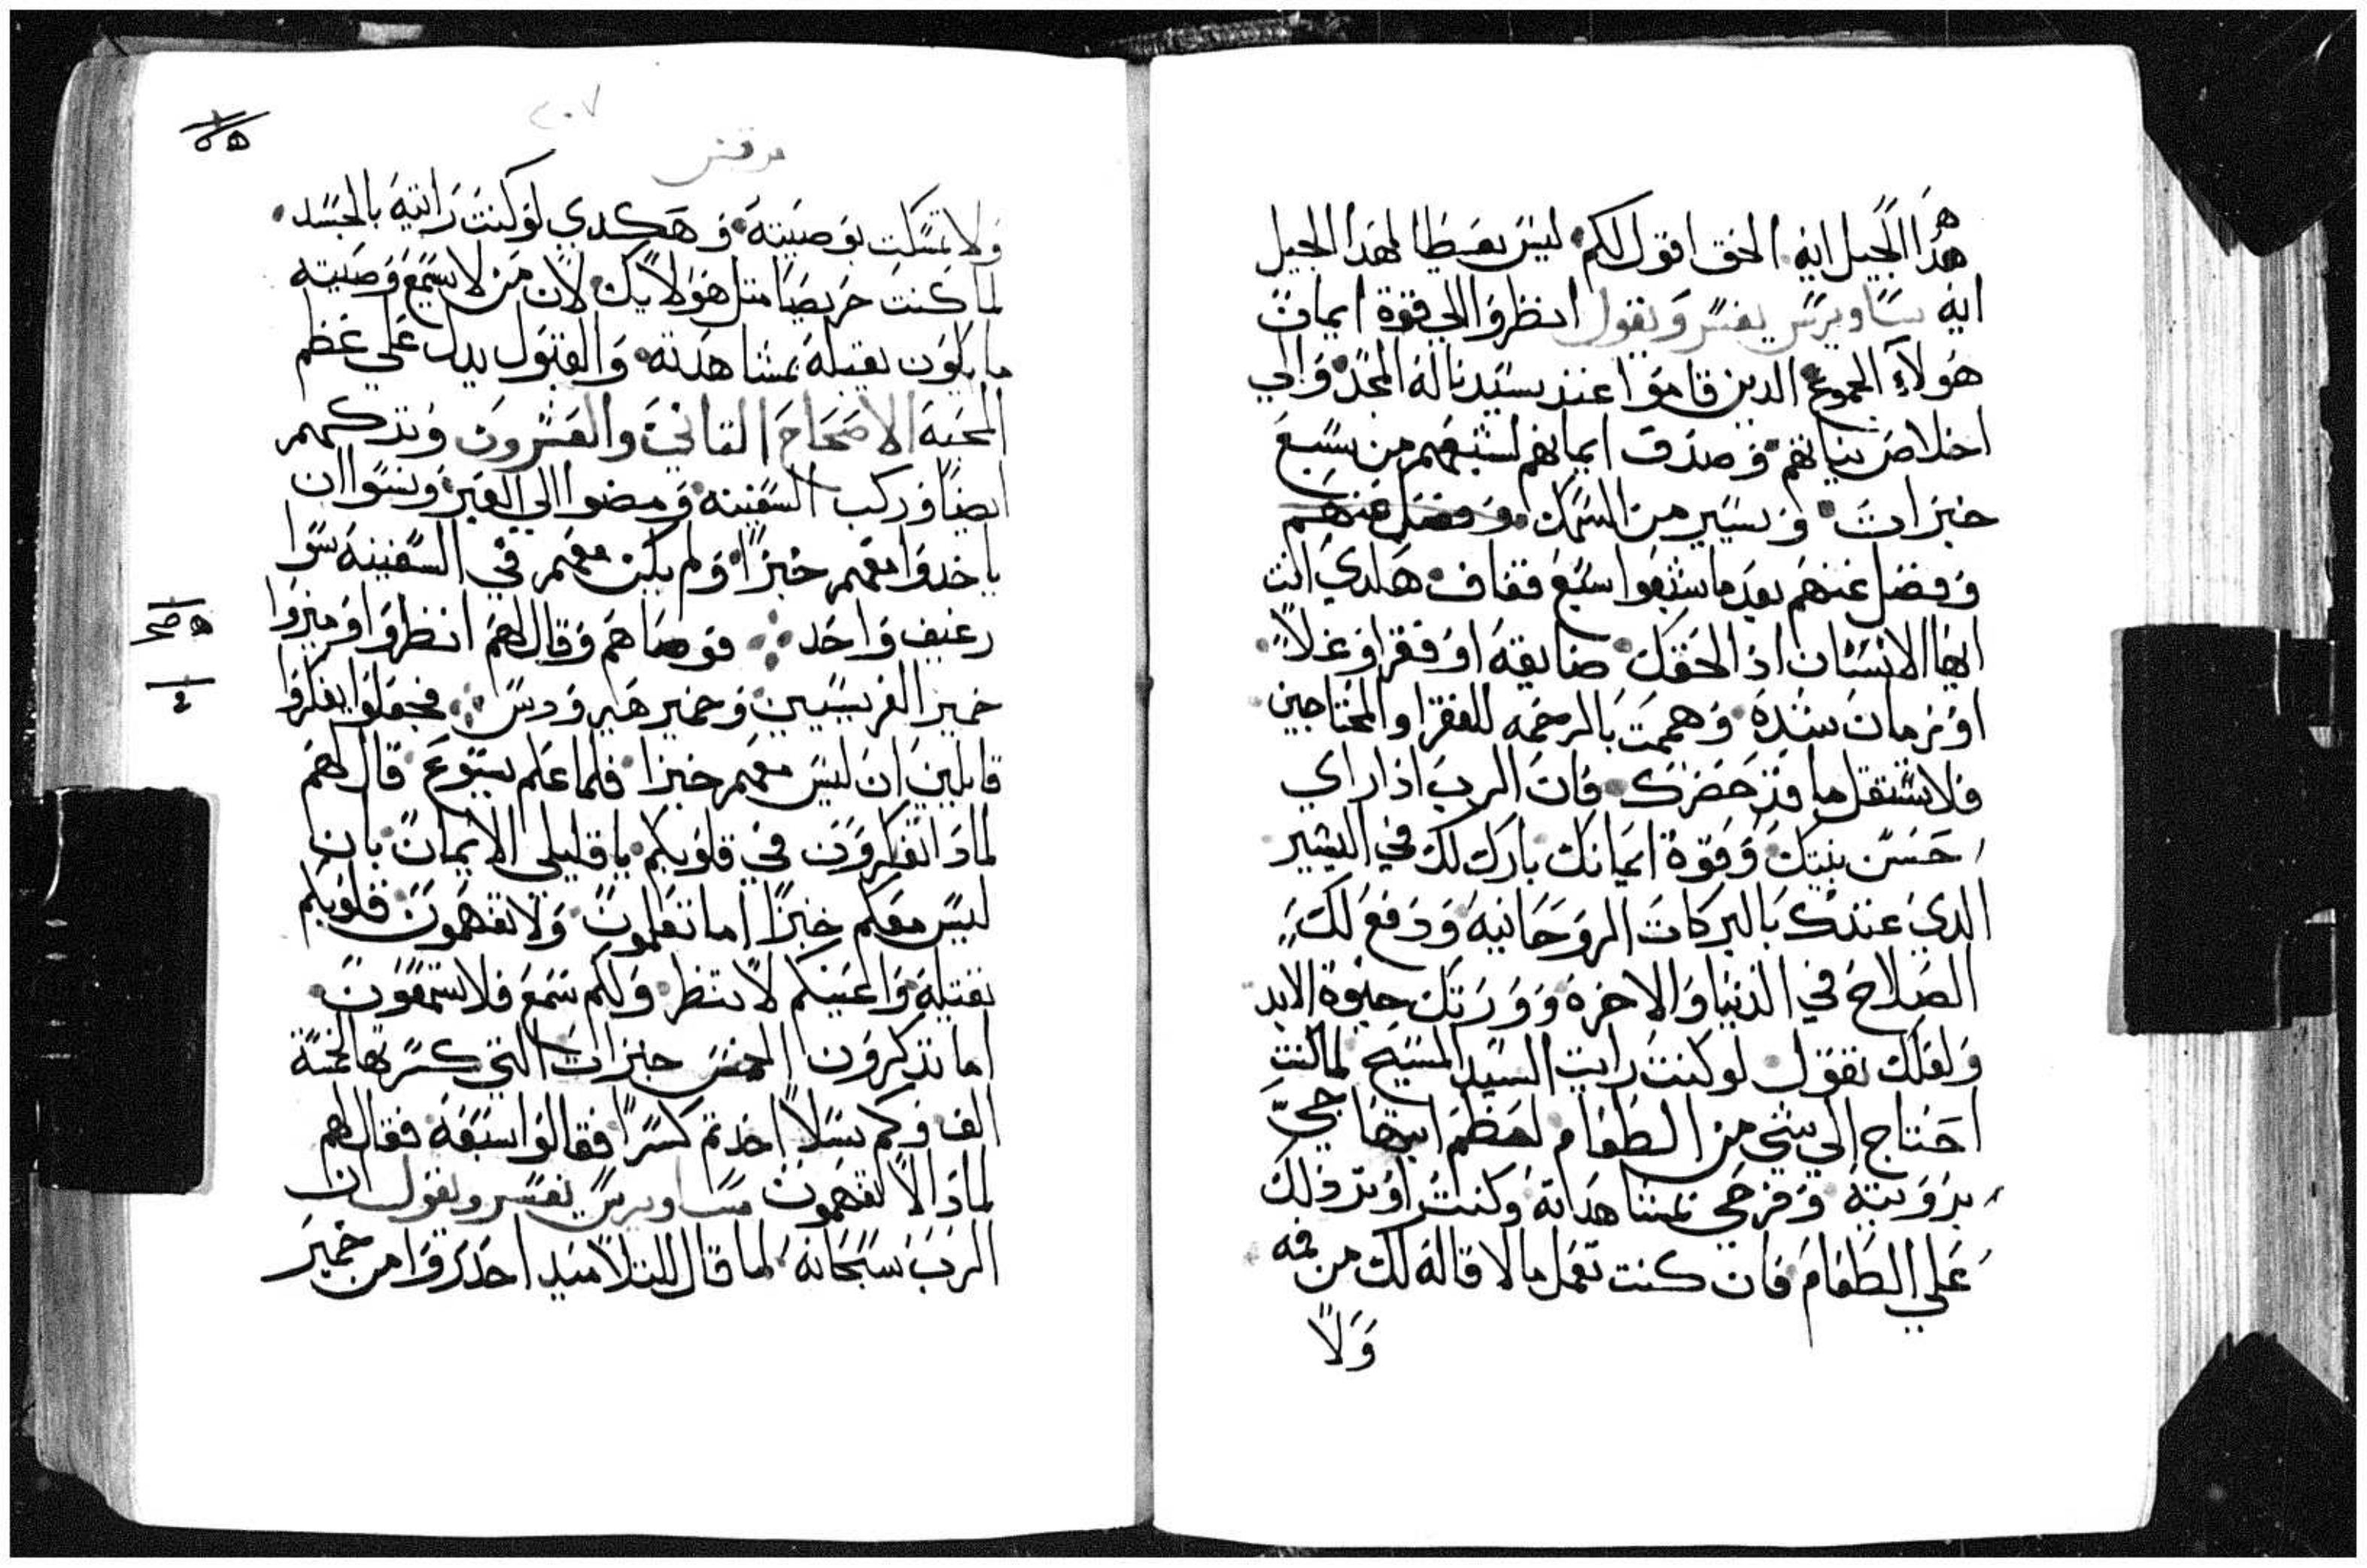 هذا الجيل ايه الحق اقول لكم ليس يعطا لهذا الجيل
ايه ساويرس يفسر ويقول انظروا الي قوة ايمان
هولاء الجموع الدين قاموا عند سيدنا له المجد والي
اخلاص نياتهم وصدق ايمانهم لشبعهم من سبع
خبزات ويسير من السمك وفضل عنهم
وفضل عنهم بعد ما شبعوا سبع قفاف هكدي انت
ايها الانسان اذا لحقك ضايقه او فقر او غلا
او زمان شده وهممت بالرحمه للفقرا والمحتاجين
فلا تستقل ما قد حضرك فان الرب اذا راي
حسن نيتك وقوة ايمانك بارك لك في اليسير
الدي عندك بالبركات الروحانيه ودفع لك
الصلاح في الدنيا والاخره وورتك حيوة الابد
ولعلك تقول لو كنت رايت السيد المسيح لما كنت
احتاج الي شي من الطعام لعظم ابتهاجي
برويته وفرحي بمشاهداته وكنت اوتر ذلك
علي الطعام فان كنت تعمل ما لا قاله لك من فمه
ولا
٢٠٧
مرقس
ولا تمسكت بوصيته وهكدي لو كنت رايته بالجسد
لما كنت حريصا متل هولايك لان من لا يسمع وصيته
ما يكون يقبله بمشاهدته والقبول يدل علي عظم
المحبه الاصحاح التاني والعشرون وتركهم
ايضا وركب السفينه ومضوا الي العبر ونسوا ان
ياخدوا معهم خبزا ولم يكن معهم في السفينه سوا
رغيف واحد فوصاهم وقال لهم انظروا وميزوا
خمير الفريسيين وخمير هيرودس فجعلوا يفكروا
قايلين ان ليس معهم خبزا فلما علم يسوع قال لهم
لمادا تفكرون في قلوبكم يا قليلي الايمان بان
ليس معكم خبزا اما تعلمون ولا تفهمون قلوبكم
تقيله واعينكم لا تنظر ولكم سمع فلا تسمعون
اما تذكرون الخمس خبزات التي كسرتها لخمسة
الف وكم سلا اخدتم كسرا فقالوا سبعه فقال لهم
لمادا لا تفهمون ساويرس يفسر ويقول ان
الرب سبحانه لما قال للتلاميد احدروا من خمير